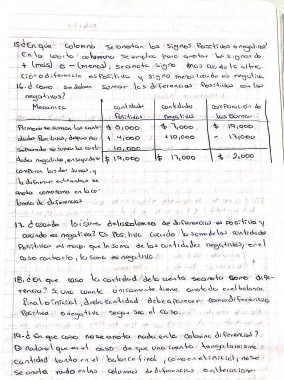 15.¿En que columna se anotan los signos Positivos o negativos?
En la cuarta columna se emplea para anotar los signos de
+ (más) o - (menos), se anota signo mas cuando la alte-
ración o diferencia es Positiva y signo menos cuando es negativa
16.¿Como se deben sumar las diferencias Positivas con las
negativas?
Mecanica cantidades Positivas cantidades negativas comparación de las sumas
Primero se suman las canti- $ 0,000 $ 7,000 $ 19,000
dades Positivas, despues por + 4,000 +10,000 - 17,000
separado se suman las canti- 10,000
dades negativas, enseguida se $ 19,000 $ 17,000 $ 2,000
comparan las dos sumas, y
la diferencia entre ambas se
anota como toma en la co-
lumna de diferencias
17. ¿Cuando la suma de la columna de diferencias es positiva y
cuando es negativa? Es Positiva cuando la suma de las cantidades
Positivas es mayor que la suma de las cantidades negativas, en el
caso contrario, la suma es negativa.
18.¿En que caso la cantidad de la cuenta se anota como dife-
rencia? Si una cuenta unicamente tiene anotado en el balance
final o inicial, dicha cantidad debe aparecer como diferencia
Positiva o negativa segun sea el caso.
19.¿En que caso no se anota nada en la columna diferencias?
Es natural que en el caso de que una cuenta tenga la misma
cantidad tanto en el balance final, como en el inicial, no se
se anota nada en las columnas de diferencias o alteraciones